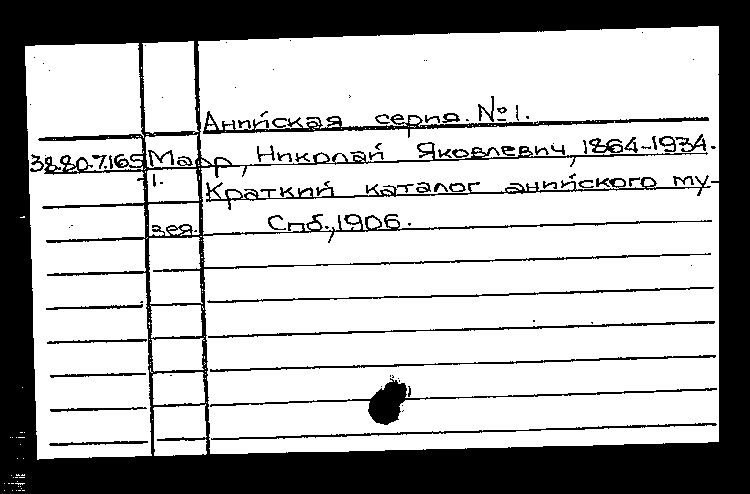 Анийская серия. №1.
3880.7.165 Марр, Николай Яковлевич, 1864-1934.
-1. Краткий каталог анийского му-
зея. Спб., 1906.